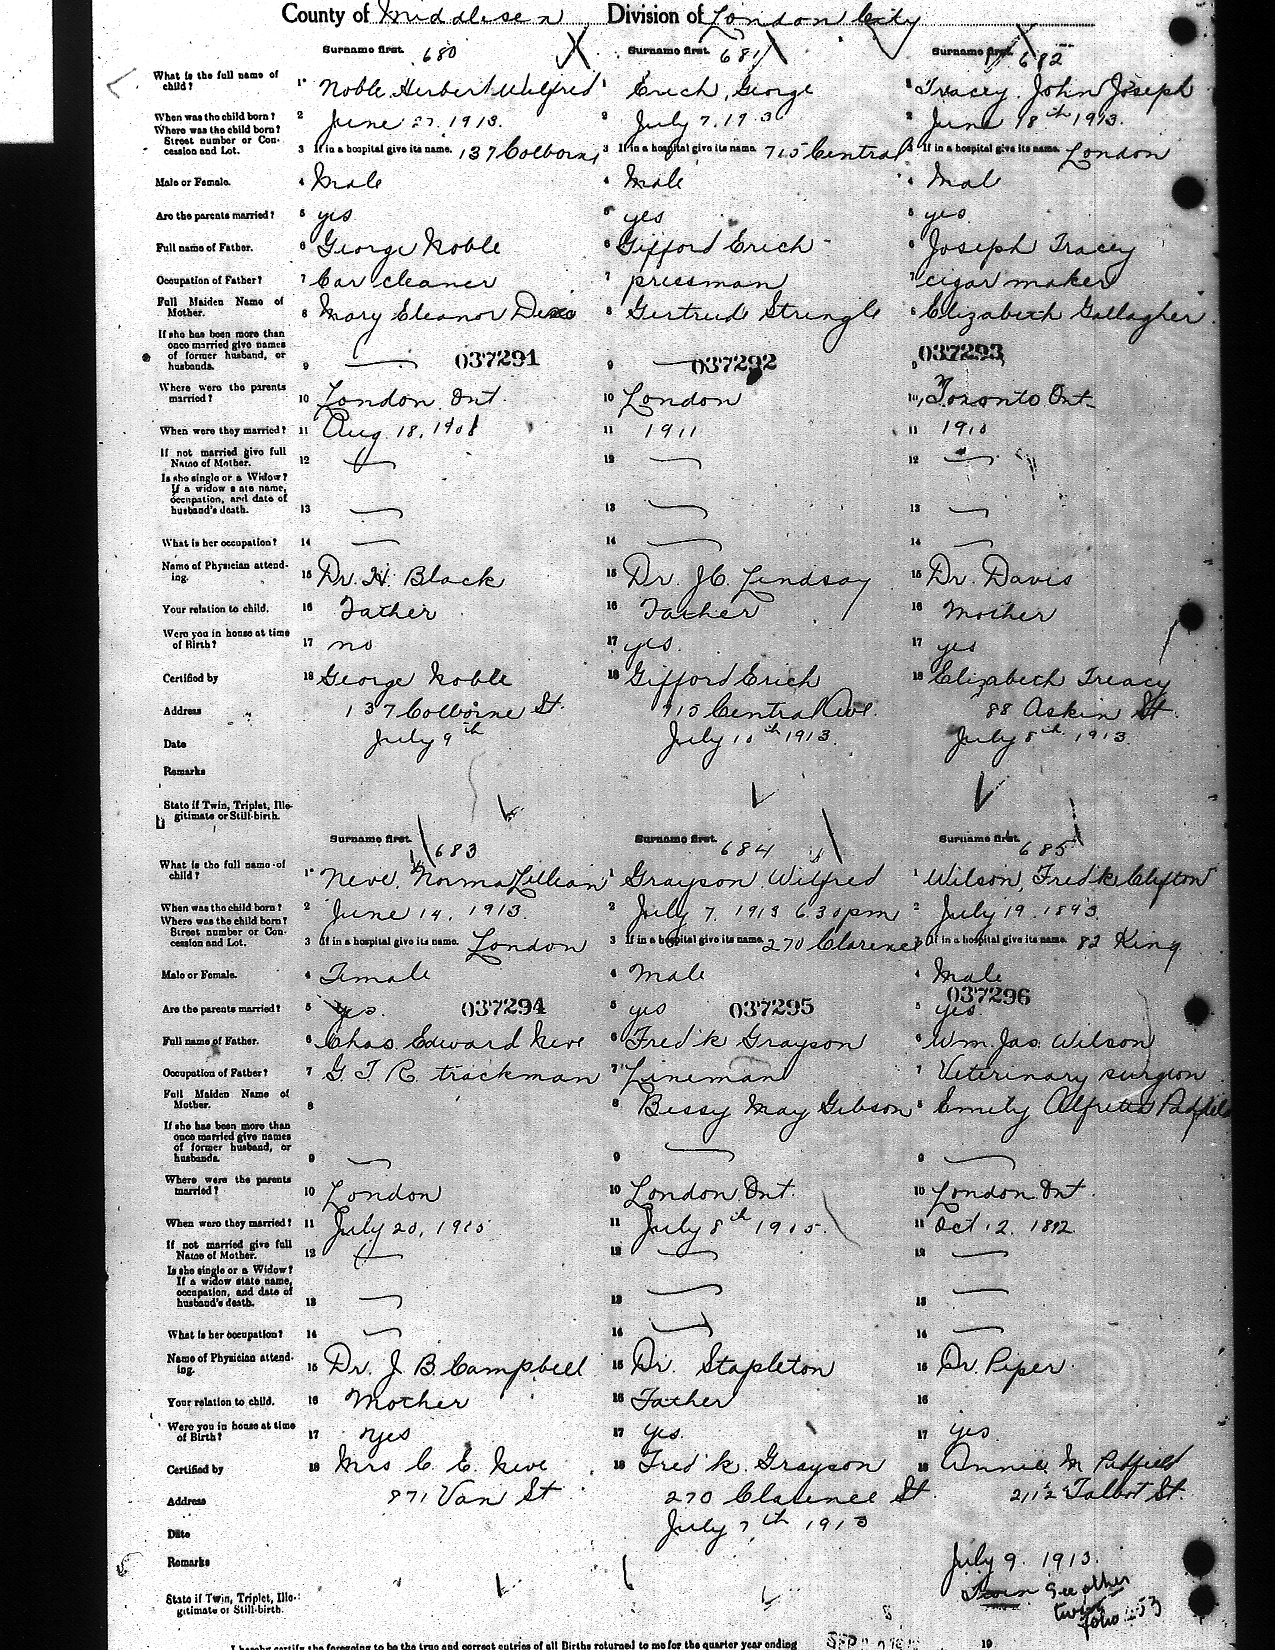 County of Middlesex Division of London City
Surname first. 680 Surname first. 681 Surname first. 682
What is the full name of child? 1 Noble Herbert Wilfred 1 Erich, George 1 Tracey, John Joseph
When was the child born? 2 June 27, 1913. 2 July 7, 1913 2 June 18th 1913.
Where was the child born? Street number or Concession and Lot. 3 If in a hospital give its name. 137 Colborne 3 If in a hospital give its name. 715 Central 3 If in a hospital give its name. London
Male or Female. 4 Male 4 Male 4 Mal
Are the parents married? 5 yes 5 yes 5 yes
Full name of Father. 6 George Noble 6 Gifford Erich 6 Joseph Tracey
Occupation of Father? 7 Car cleaner 7 pressman 7 cigar maker
Full Maiden Name of Mother. 8 Mary Eleanor 8 Gertrude Stringle 8 Elizabeth Gallagher
If she has been more than once married give names of former husband, or husbands. 9 — 037291 9 — 037292 9 037293
Where were the parents married? 10 London Ont. 10 London 10 Toronto Ont.
When were they married? 11 Aug 18, 1908 11 1911 11 1910
If not married give full Name of Mother. 12 — 12 — 12 —
Is she single or a Widow? If a widow state name, occupation, and date of husband's death. 13 — 13 — 13 —
What is her occupation? 14 — 14 — 14 —
Name of Physician attending. 15 Dr. H. Black 15 Dr. J.C. Lindsay 15 Dr. Davis
Your relation to child. 16 Father 16 Father 16 Mother
Were you in house at time of Birth? 17 no 17 yes. 17 yes
Certified by 18 George Noble 18 Gifford Erich 18 Elizabeth Treacy
Address 137 Colborne St. 715 Central Ave. 88 Askin St.
Date July 9th July 10th 1913. July 8th 1913.
Remarks
State if Twin, Triplet, Illegitimate or Still-birth.
Surname first. 683 Surname first. 684 Surname first. 685
What is the full name of child? 1 Neve, Norma Lillian 1 Grayson, Wilfred 1 Wilson, Fred'k Clifton
When was the child born? 2 June 14, 1913. 2 July 7, 1913 6.30 pm 2 July 19. 1893
Where was the child born? Street number or Concession and Lot. 3 If in a hospital give its name. London 3 If in a hospital give its name. 270 Clarence 3 If in a hospital give its name. 82 King
Male or Female. 4 Female 4 Male 4 Male
Are the parents married? 5 yes. 037294 5 yes 037295 5 yes. 037296
Full name of Father. 6 Chas. Edward Neve 6 Fred'k Grayson 6 Wm. Jas. Wilson
Occupation of Father? 7 G. T. R. trackman 7 Lineman 7 Veterinary surgeon
Full Maiden Name of Mother. 8 8 Bessy May Gibson 8 Emily Alfretta Padfield
If she has been more than once married give names of former husband, or husbands. 9 — 9 — 9 —
Where were the parents married? 10 London 10 London, Ont. 10 London Ont.
When were they married? 11 July 20, 1905 11 July 8th 1905. 11 Oct 12. 1892
If not married give full Name of Mother. 12 — 12 — 12 —
Is she single or a Widow? If a widow state name, occupation, and date of husband's death. 13 — 13 — 13
What is her occupation? 14 — 14 — 14 —
Name of Physician attending. 15 Dr. J. B. Campbell 15 Dr. Stapleton 15 Dr. Piper.
Your relation to child. 16 Mother 16 Father 16
Were you in house at time of Birth? 17 yes 17 yes. 17 yes.
Certified by 18 Mrs C. E. Neve 18 Fred'k. Grayson 18 Annie M Padfield
Address 871 Van St 270 Clarence St. 211½ Talbot St.
Date July 7th 1913
Remarks July 9. 1913.
State if Twin, Triplet, Illegitimate or Still-birth. Twin See other
twin
folio 453
I hereby certify the foregoing to be the true and correct entries of all Births returned to me for the quarter year ending SEP 19